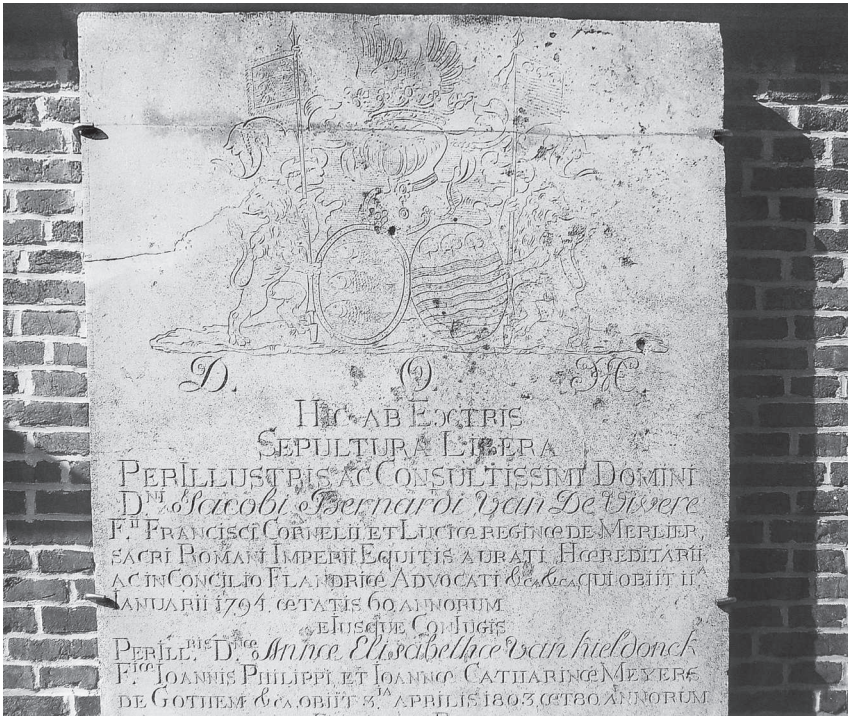 D. O. M
HIC AB EXTRIS
SEPULTURA LIBERA
PERILLUSTRIS AC CONSULTISSIMI DOMINI
D.NI Jacobi Bernardi Van De Vivere
F.II FRANCISCI CORNELII ET LUCIÆ REGINÆ DE MERLIER,
SACRI ROMANI IMPERII EQUITIS AURATI HÆREDITARII
AC IN CONCILIO FLANDRIÆ ADVOCATI &ca &ca QUI OBIIT IIA
IANUARII 1794. ÆTATIS 60 ANNORUM
EIUSQUE CONJUGIS
PERILL.RIS D.NÆ Annæ Elisabethæ Van hieldonck
F.IÆ IOANNIS PHILIPPI ET IOANNÆ CATHARINÆ MEYERS
DE GOTHEM &ca. OBIIT 3.IA APRILIS 1803, ÆT 80 ANNORUM